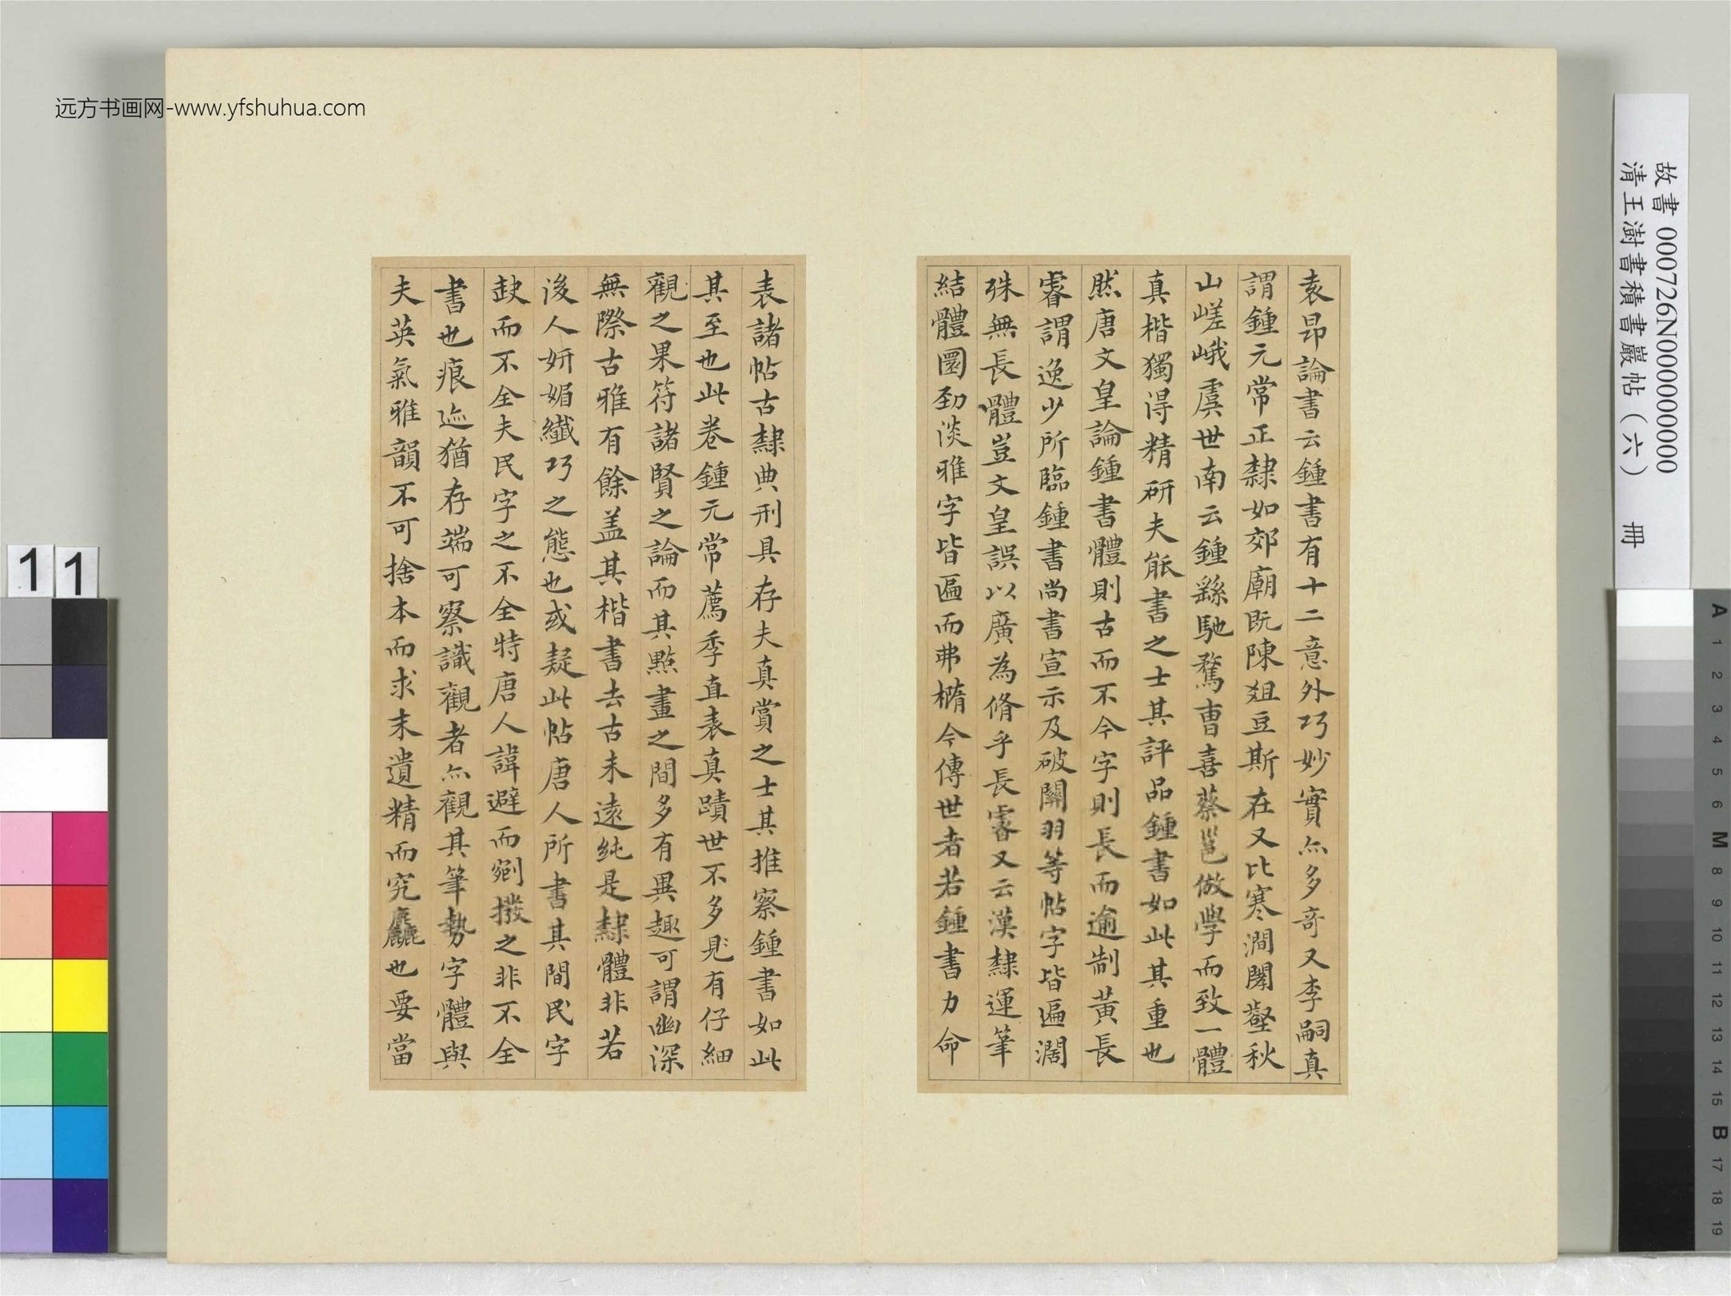 远方书画网-www.yfshuhua.com
故書 000726N000000000
清王澍書積書巖帖（六） 冊
袁昂論書云鍾書有十二意外巧妙實亦多奇又李嗣真
謂鍾元常正隸如郊廟既陳俎豆斯在又比寒澗閟壑秋
山嵯峨虞世南云鍾繇馳騖曹喜蔡邕倣學而致一體
真楷獨得精研夫能書之士其評品鍾書如此其重也
然唐文皇論鍾書體則古而不今字則長而逾制黃長
睿謂逸少所臨鍾書尚書宣示及破關羽等帖字皆匾濶
殊無長體豈文皇誤以廣為脩乎長睿又云漢隸運筆
結體圜勁淡雅字皆匾而弗橢今傳世者若鍾書力命
表諸帖古隸典刑具存夫真賞之士其推察鍾書如此
其至也此卷鍾元常薦季直表真蹟世不多見有仔細
觀之果符諸賢之論而其點畫之間多有異趣可謂幽深
無際古雅有餘盖其楷書去古未遠純是隸體非若
後人妍媚纖巧之態也或疑此帖唐人所書其間民字
缺而不全夫民字之不全特唐人諱避而剜撥之非不全
書也痕迹猶存端可察識觀者亦觀其筆勢字體與
夫英氣雅韻不可捨本而求末遺精而究麤也要當
11
11
A 1 2 3 4 5 6 M 8 9 10 11 12 13 14 15 B 17 18 19